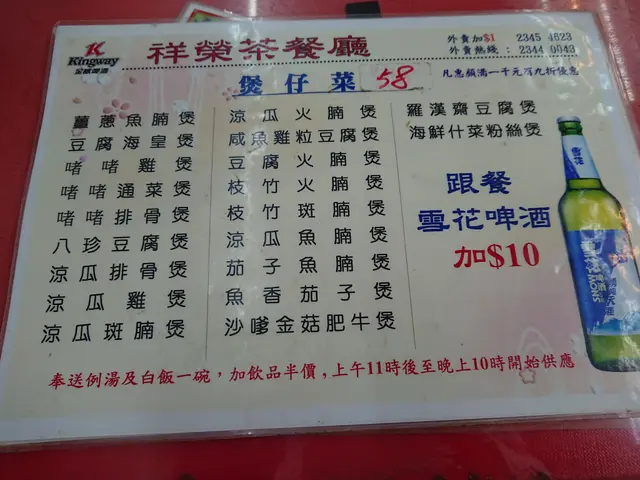 Kingway
金威啤酒
祥榮茶餐廳
外賣加$1 2345 4623
外賣熱線：2344 0043
凡惠顧滿一千元有九折優惠
煲仔菜 58
薑蔥魚腩煲
豆腐海皇煲
啫啫雞煲
啫啫通菜煲
啫啫排骨煲
八珍豆腐煲
涼瓜排骨煲
涼瓜雞煲
涼瓜斑腩煲
涼瓜火腩煲
咸魚雞粒豆腐煲
豆腐火腩煲
枝竹火腩煲
枝竹斑腩煲
涼瓜魚腩煲
茄子魚腩煲
魚香茄子煲
沙嗲金菇肥牛煲
羅漢齋豆腐煲
海鮮什菜粉絲煲
跟餐
雪花啤酒
加$10
雪花
奉送例湯及白飯一碗，加飲品半價，上午11時後至晚上10時開始供應